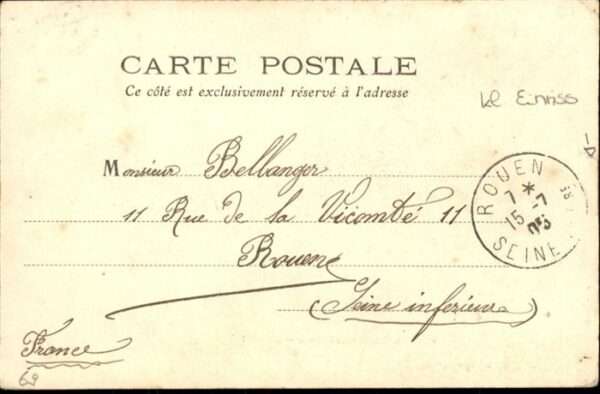 CARTE POSTALE
Ce côté est exclusivement réservé à l'adresse
kl Einriss
Monsieur Bellanger
11 Rue de la Vicomté 11
Rouen
(Seine inferieure)
France
ROUEN
7 *
15 -7
03
SEINE